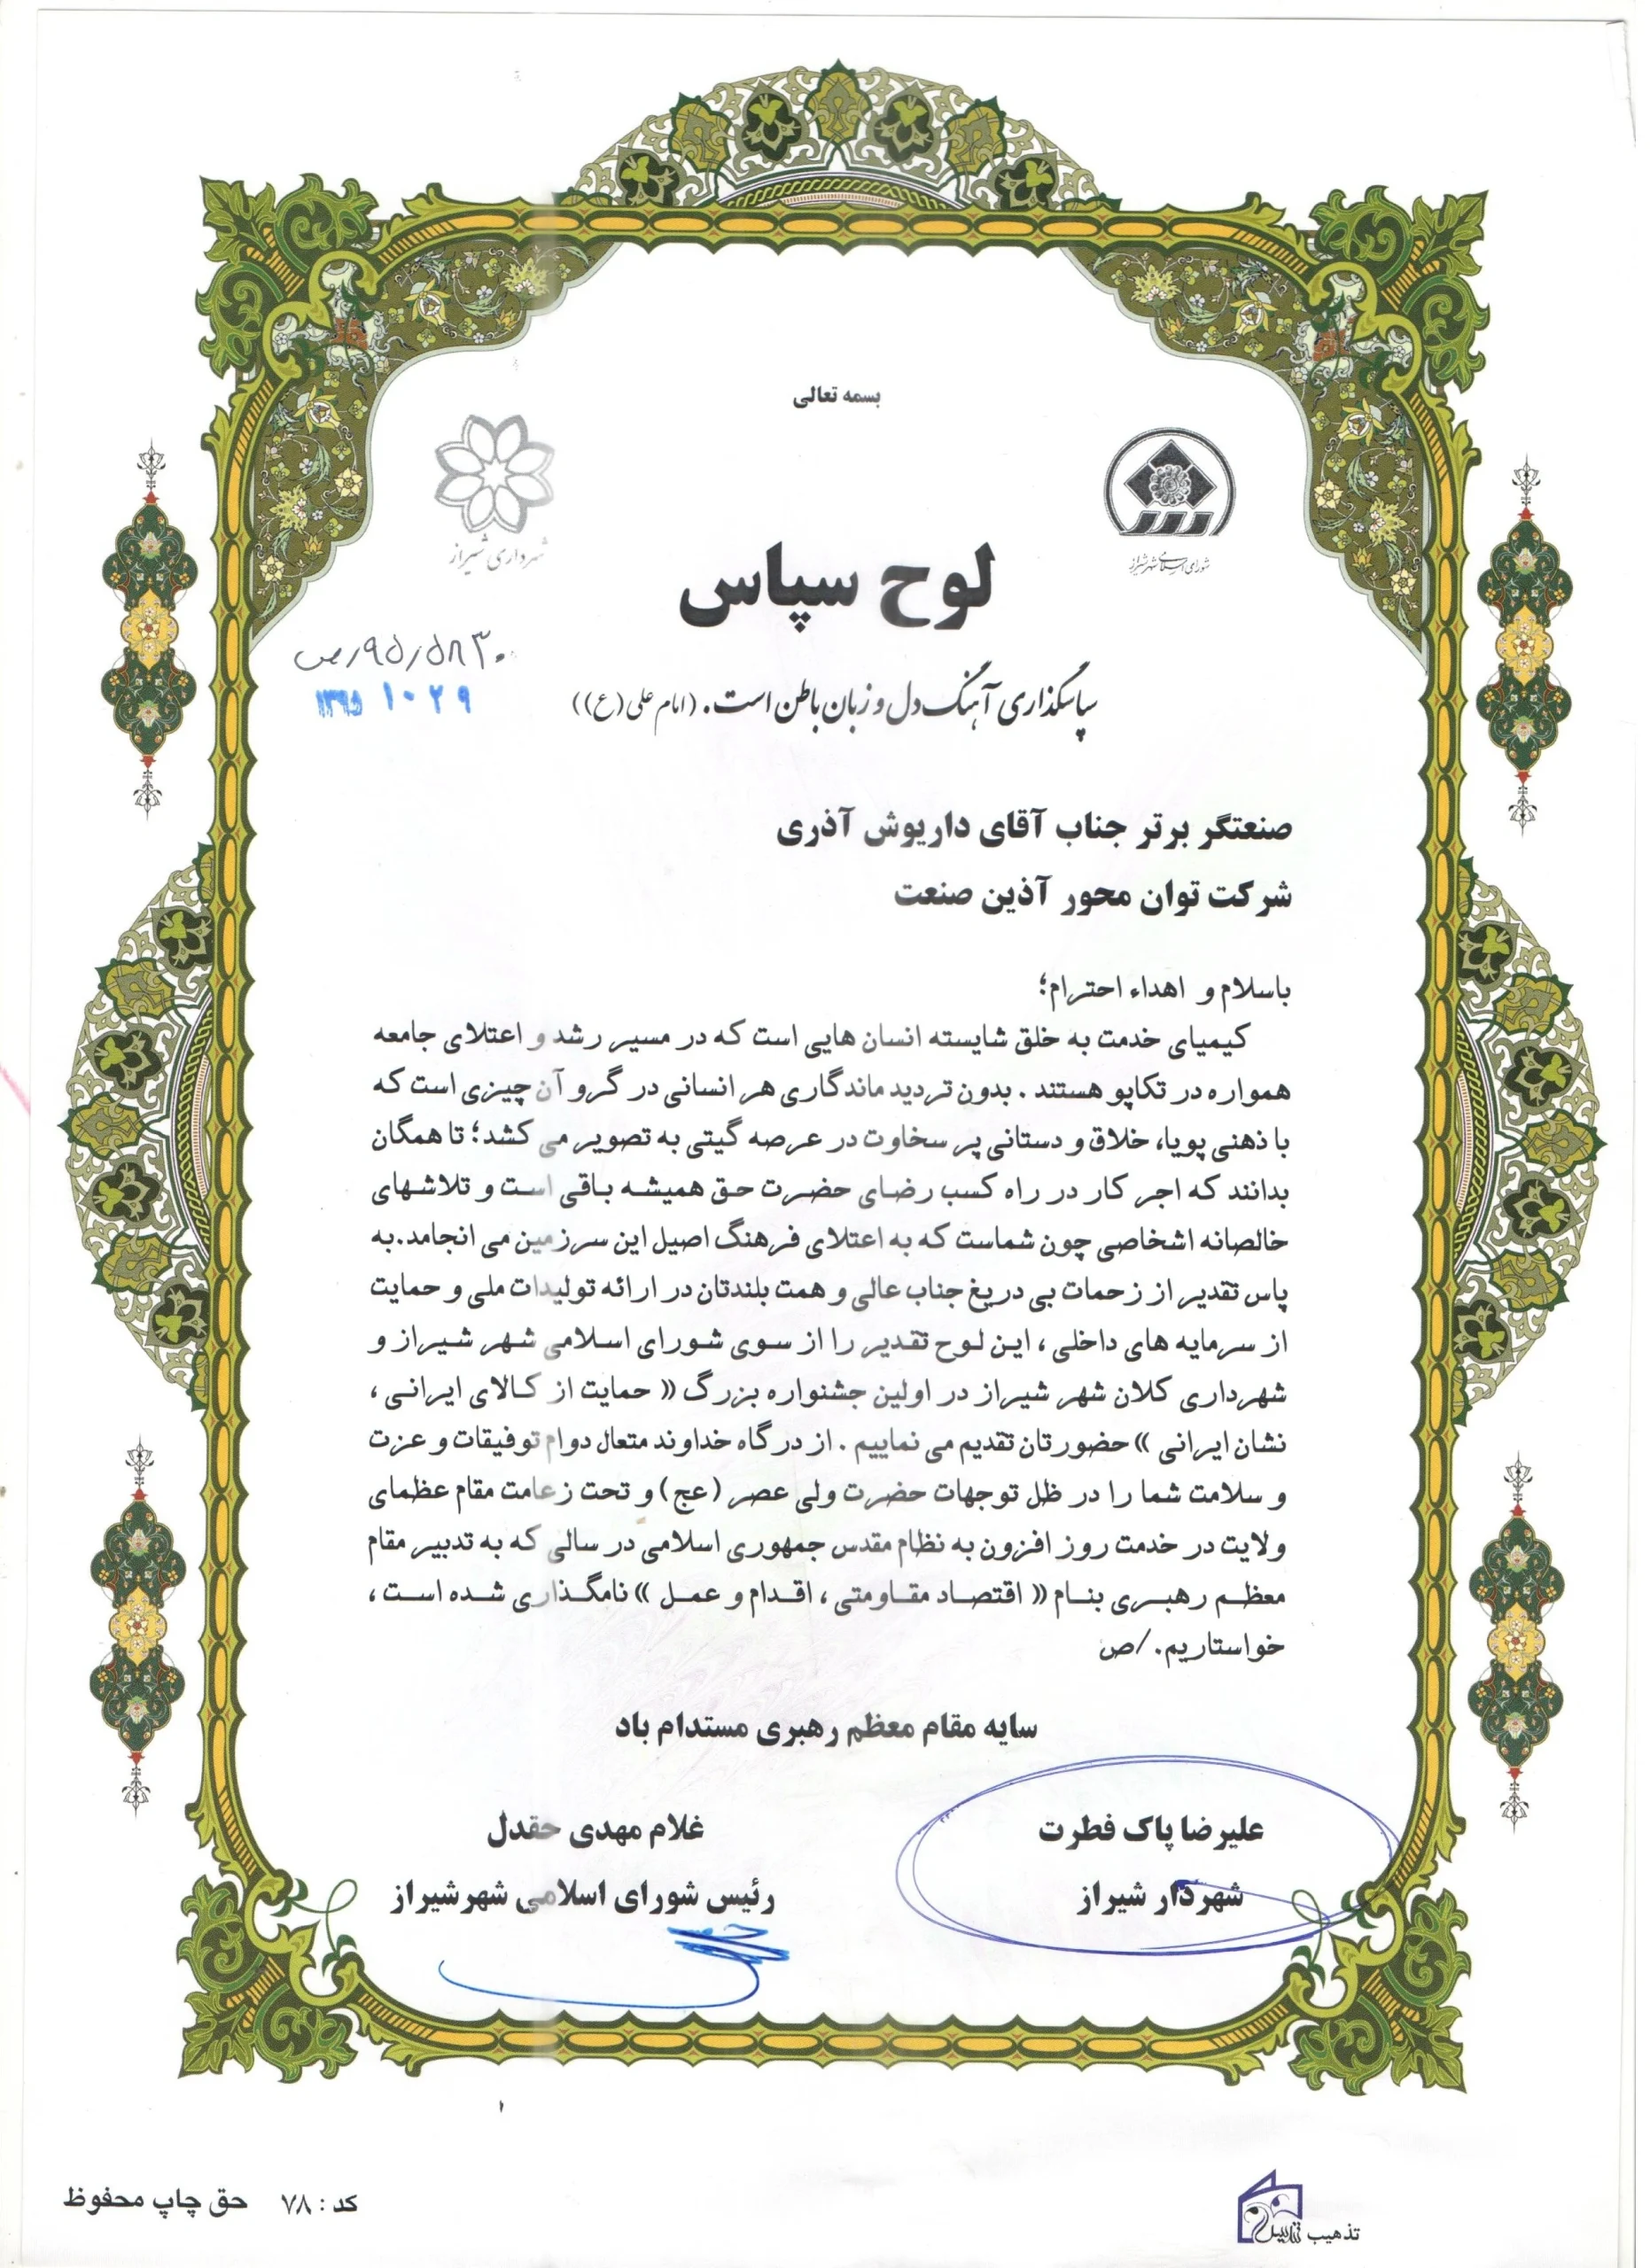 بسمه تعالی
شورای اسلامی شهر شیراز
شهرداری شیراز
لوح سپاس
۹۵٫۵۸۳۰٫ص
۱۳۹۵ ۱۰ ۲۹
سپاسگذاری آهنگ دل و زبان باطن است. (امام علی (ع))
صنعتگر برتر جناب آقای داریوش آذری
شرکت توان محور آذین صنعت
باسلام و اهداء احترام؛
کیمیای خدمت به خلق شایسته انسان هایی است که در مسیر رشد و اعتلای جامعه
همواره در تکاپو هستند . بدون تردید ماندگاری هر انسانی در گرو آن چیزی است که
با ذهنی پویا، خلاق و دستانی پر سخاوت در عرصه گیتی به تصویر می کشد؛ تا همگان
بدانند که اجر کار در راه کسب رضای حضرت حق همیشه باقی است و تلاشهای
خالصانه اشخاصی چون شماست که به اعتلای فرهنگ اصیل این سرزمین می انجامد.به
پاس تقدیر از زحمات بی دریغ جناب عالی و همت بلندتان در ارائه تولیدات ملی و حمایت
از سرمایه های داخلی ، این لوح تقدیر را از سوی شورای اسلامی شهر شیراز و
شهرداری کلان شهر شیراز در اولین جشنواره بزرگ « حمایت از کالای ایرانی ،
نشان ایرانی » حضورتان تقدیم می نماییم . از درگاه خداوند متعال دوام توفیقات و عزت
و سلامت شما را در ظل توجهات حضرت ولی عصر (عج) و تحت زعامت مقام عظمای
ولایت در خدمت روز افزون به نظام مقدس جمهوری اسلامی در سالی که به تدبیر مقام
معظم رهبری بنام « اقتصاد مقاومتی ، اقدام و عمل » نامگذاری شده است ،
خواستاریم. /ص
سایه مقام معظم رهبری مستدام باد
علیرضا پاک فطرت
شهردار شیراز
غلام مهدی حقدل
رئیس شورای اسلامی شهرشیراز
کد : ۷۸ حق چاپ محفوظ
تذهیب